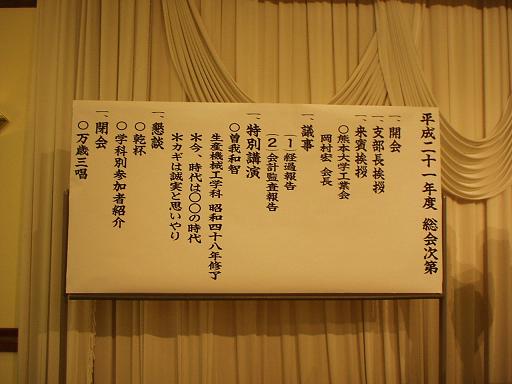 平成二十一年度 総会次第
一、開会
一、支部長挨拶
一、来賓挨拶
○熊本大学工業会
岡村宏 会長
一、議事
(1)経過報告
(2)会計監査報告
一、特別講演
○曽我和智
生産機械工学科 昭和四十八年修了
＊今、時代は○○の時代
＊カギは誠実と思いやり
一、懇談
○乾杯
○学科別参加者紹介
一、閉会
○万歳三唱